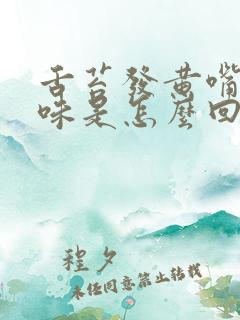 舌苔發黃嘴
味是怎麼回
程夕
未經同意禁止轉載